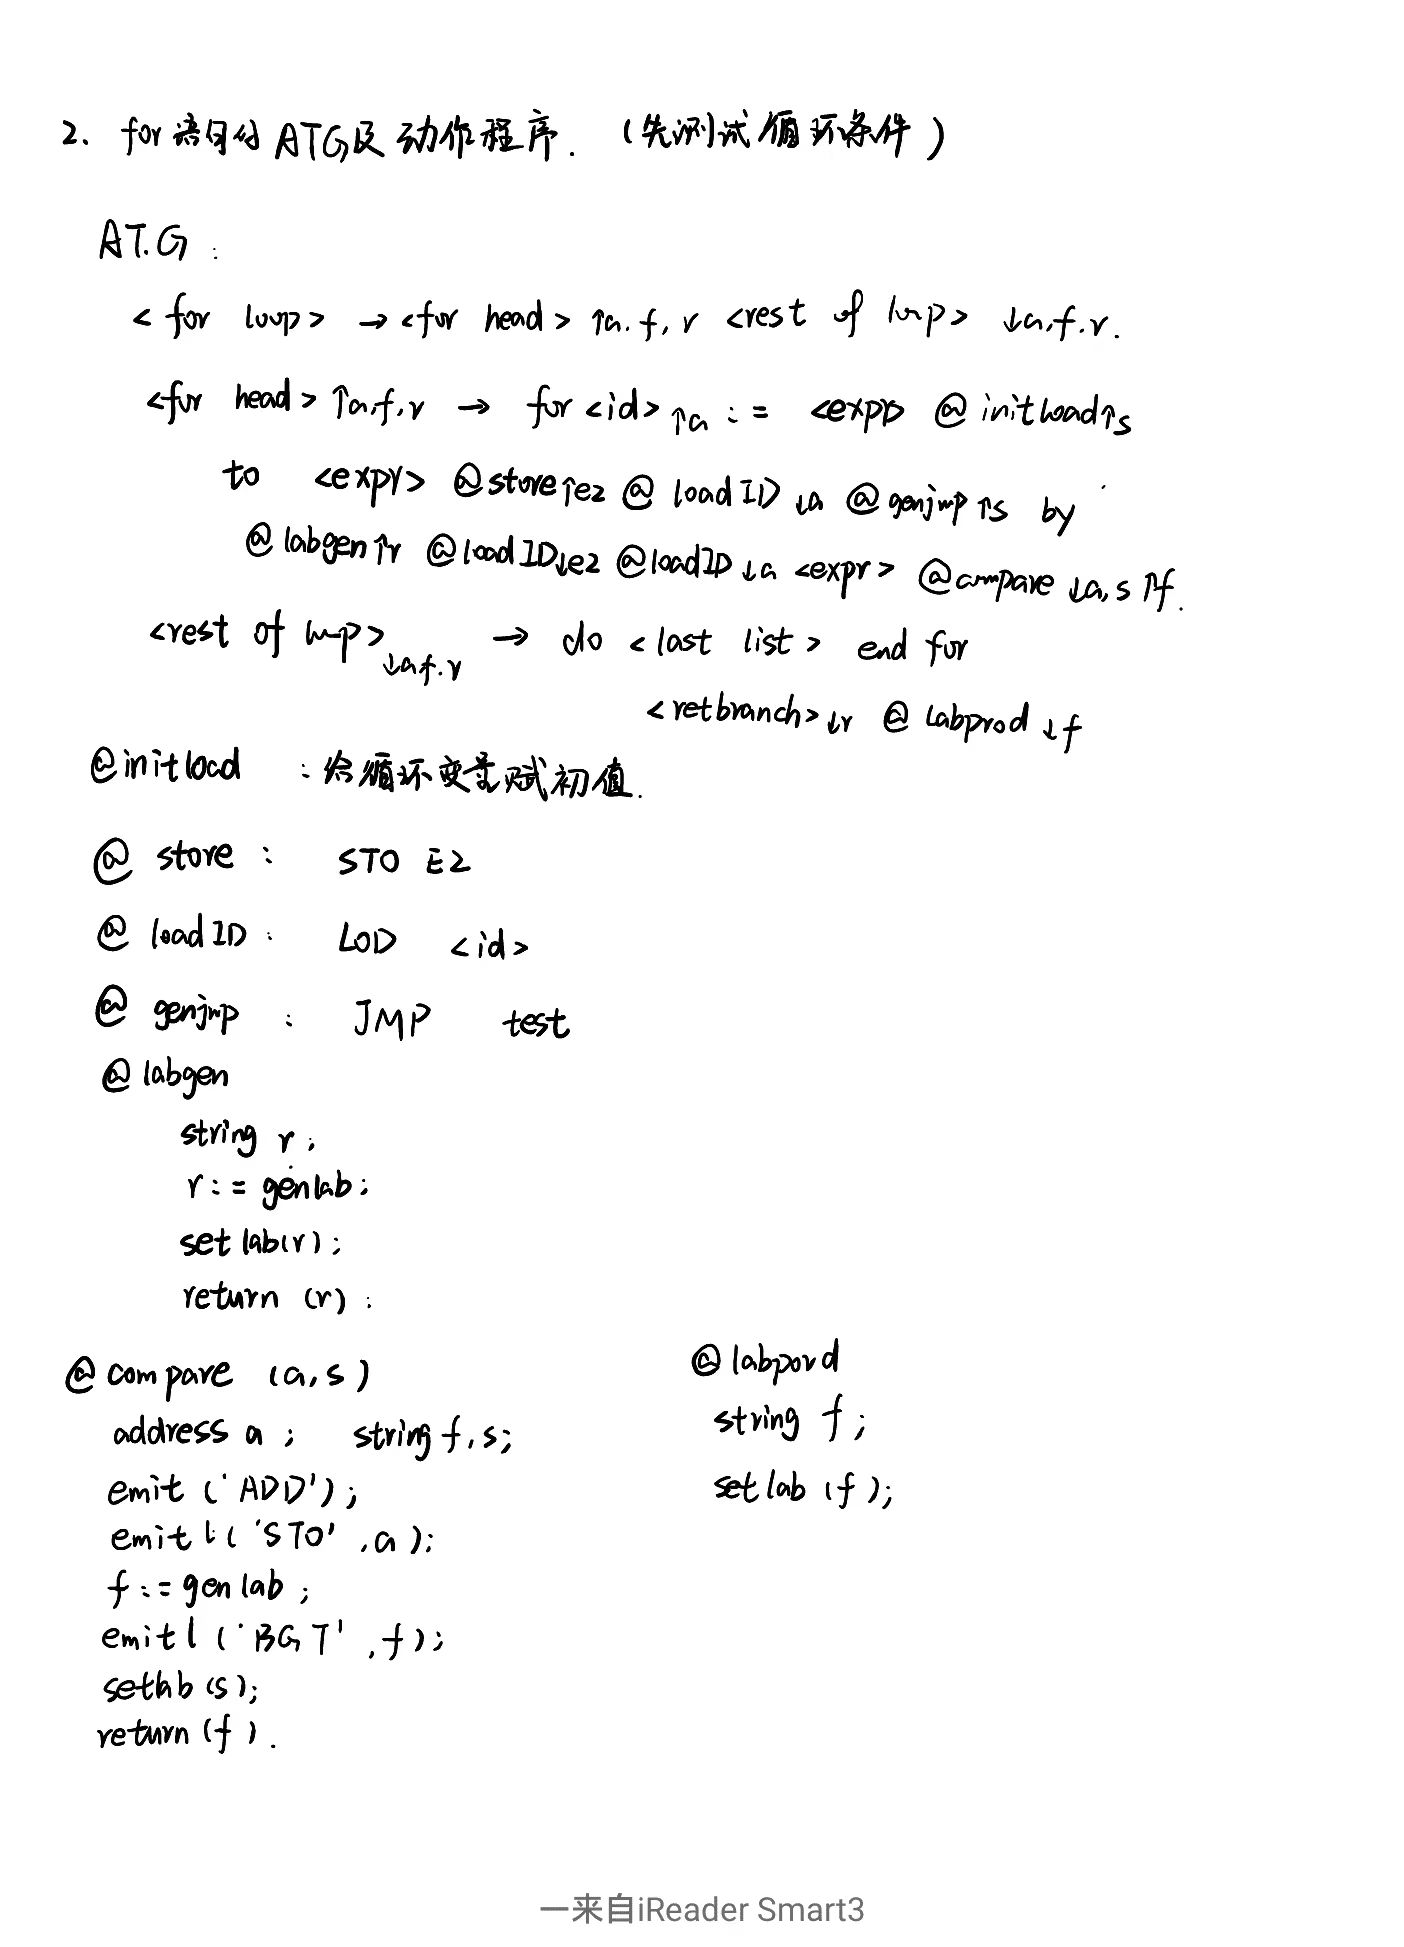 2、for语句的ATG及动作程序.（先测试循环条件）
AT.G :
<for loop> → <for head> ↑a.f,r <rest of loop> ↓a,f.r.
<for head> ↑a,f,r → for <id>↑a := <expr> @initload↑s
to <expr> @store↑e2 @ loadID↓a @genjmp↑s by
@labgen↑r @loadID↓e2 @loadID↓a <expr> @compare↓a,s↑f.
<rest of loop>↓a f.r → do <last list> end for
<retbranch>↓r @labprod↓f
@initload : 给循环变量赋初值.
@ store : STO E2
@ loadID : LOD <id>
@ genjmp : JMP test
@ labgen
string r ;
r := genlab;
setlab(r) ;
return (r) :
@ compare (a,s)
address a ; string f,s;
emit ('ADD');
emitl('STO',a);
f := genlab ;
emitl('BGT',f);
setlab(s);
return(f).
@ labpord
string f ;
setlab (f);
一来自iReader Smart3